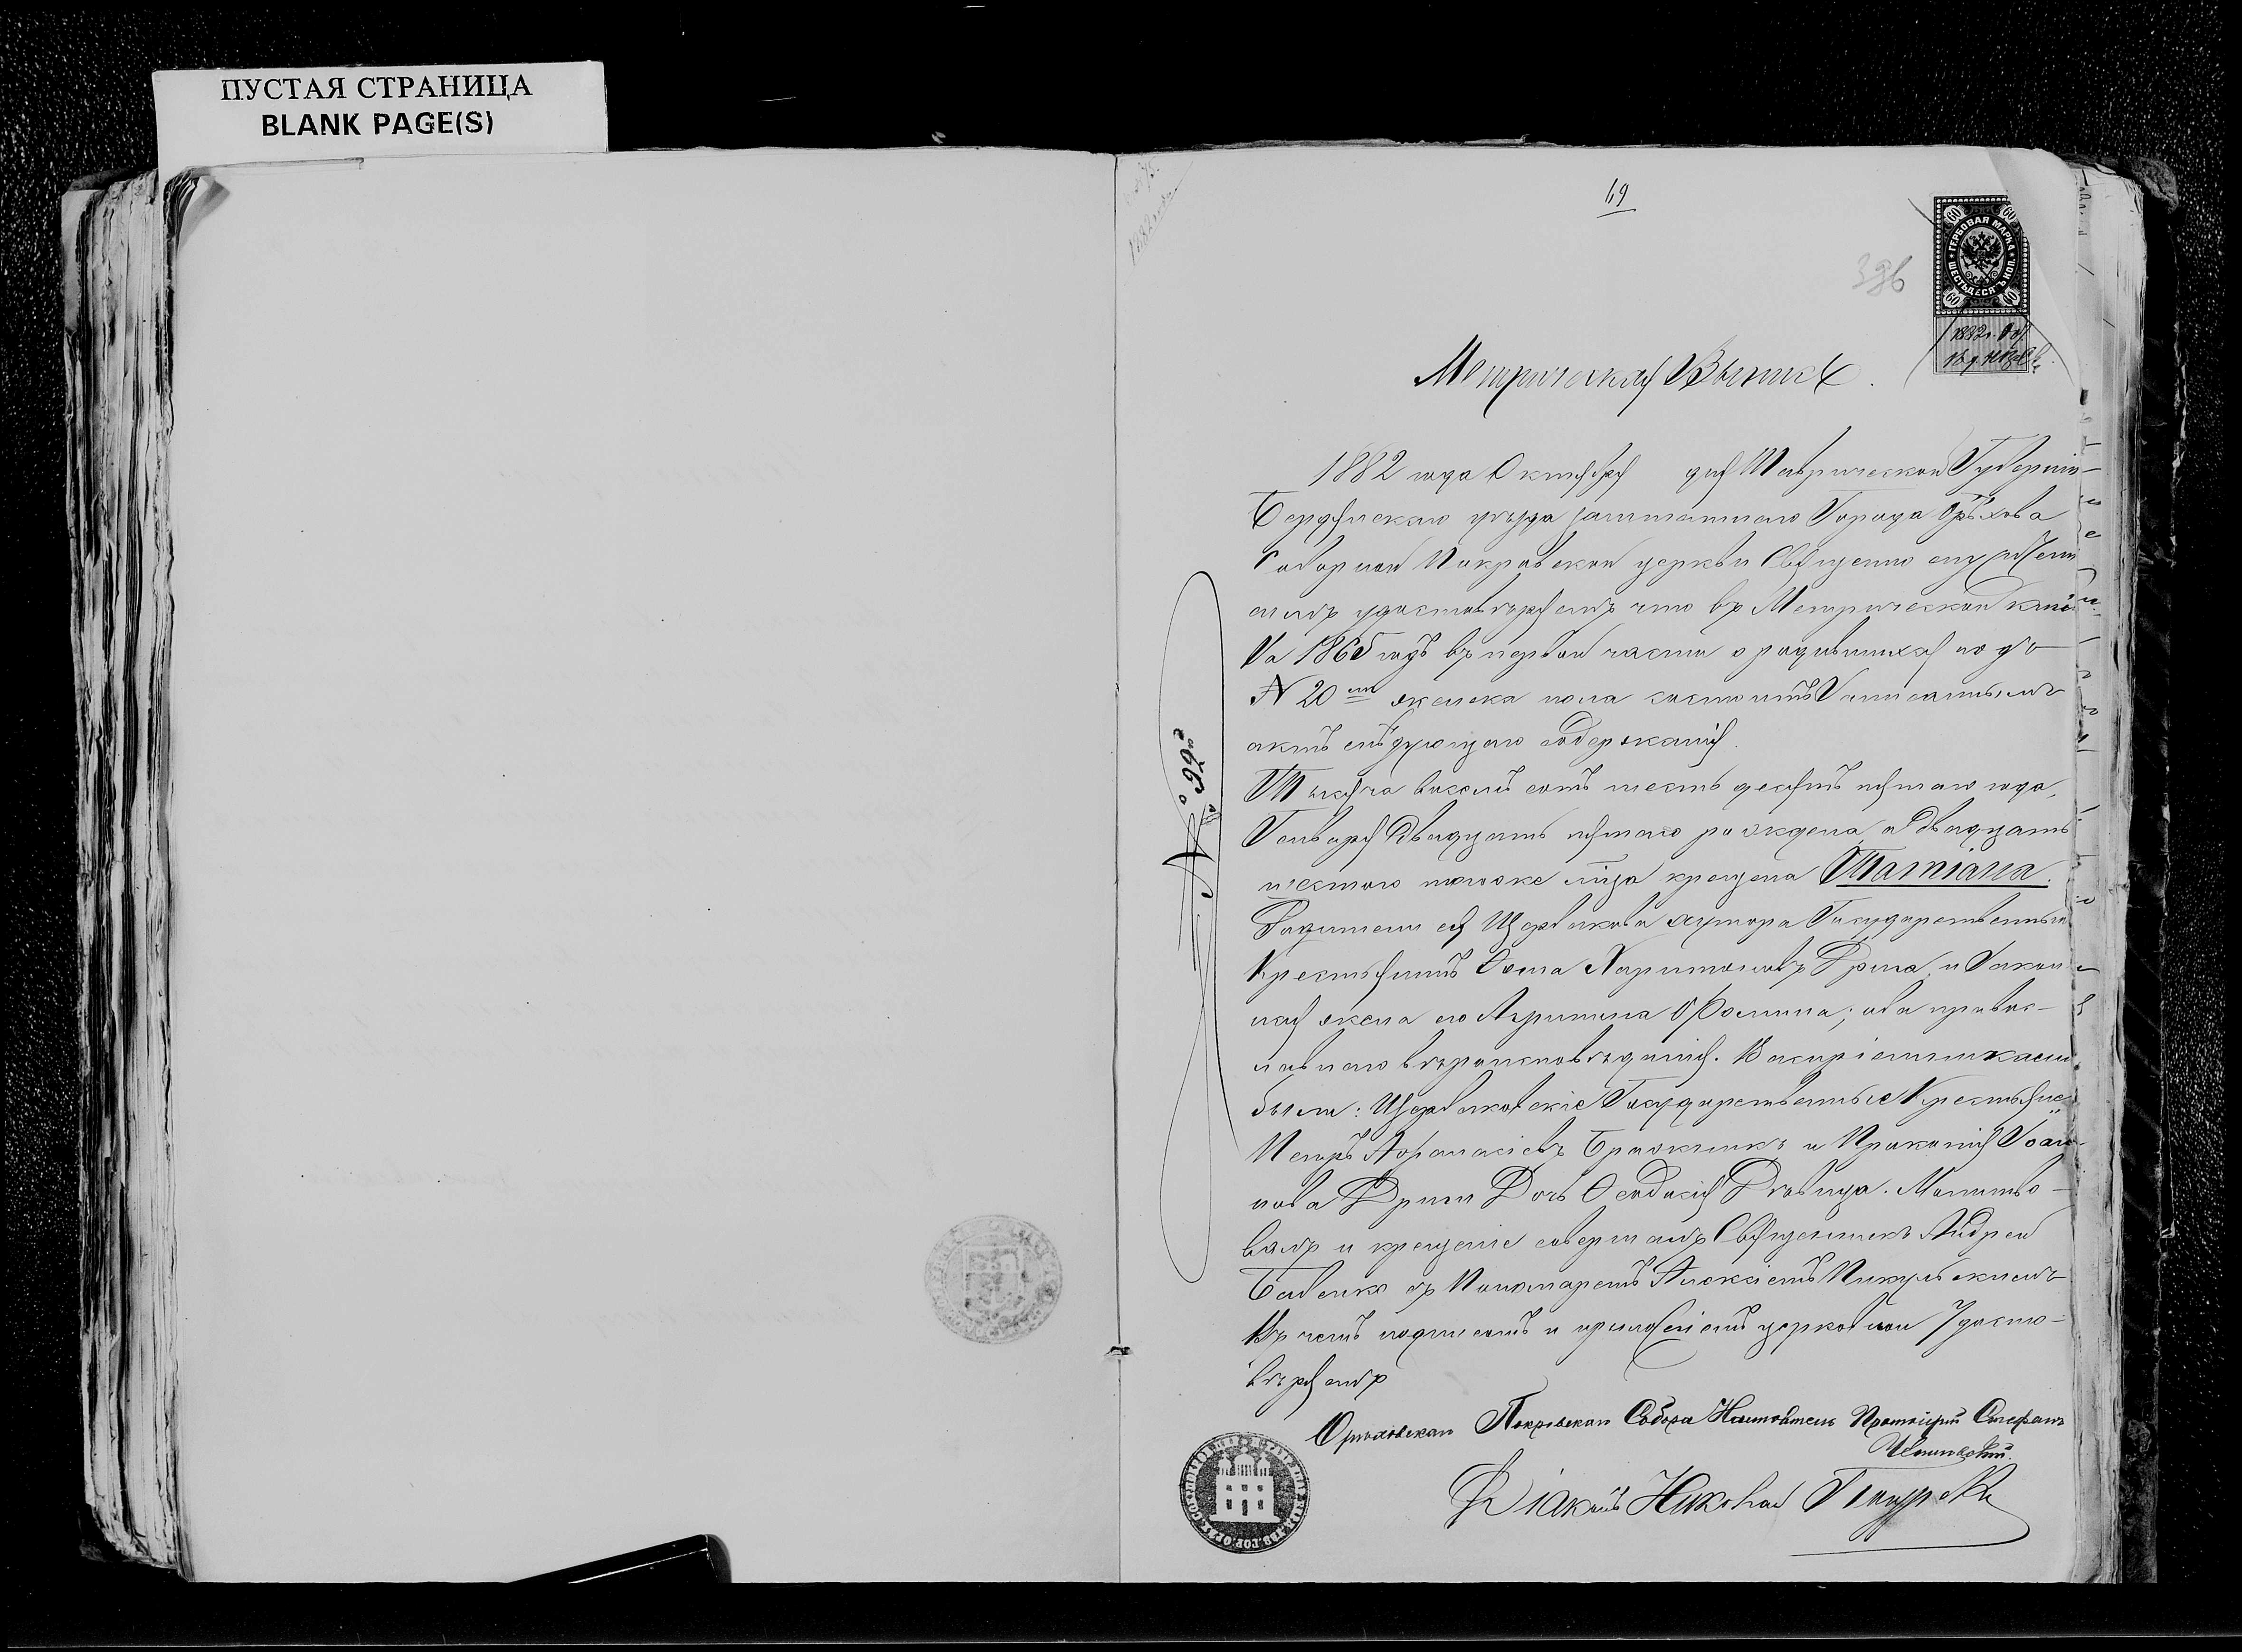 ПУСТАЯ СТРАНИЦА
BLANK PAGE(S)
69
396
ГЕРБОВАЯ МАРКА
ШЕСТЬДЕСЯТЪ КОП.
60 60 60 60
1882 г.
Метрическая Выпись.
1882 года Октября дня Таврической Губерніи
Бердянскаго уѣзда заштатнаго Города Орѣхова
Соборной Покровской церкви Священно служители
симъ удостовѣряемъ что въ Метрической книгѣ
За 1865 годъ въ первой части о родившихся подъ
№ 20 женска пола состоитъ Записаннымъ
актъ слѣдующаго содержанія.
Тысяча восемь сотъ шесть десятъ пятаго года,
Генваря Двадцать пятаго рождена а Двадцать
шестого тогоже мца крещена Татіана.
Родители ея Щербакова хутора Государственный
Крестьянинъ Фома Харитоновъ и Закон-
ная жена его ; оба правос-
лавнаго вѣроисповѣданія. Воспріемниками
были: Щербаковскіе Государственные Крестьяне
Петръ Афанасіевъ и Прокопія Іоан-
нова Дочь Феодосія Дѣвица. Молитво-
валъ и крещеніе совершалъ Священникъ Андрей
съ Пономаремъ Алексіемъ
Въ чемъ подписомъ и приложеніемъ церковной Удосто-
вѣряемъ
Орѣховскаго Покровскаго Собора Настоятель Протоіерей Стефанъ
Діаконъ Николай